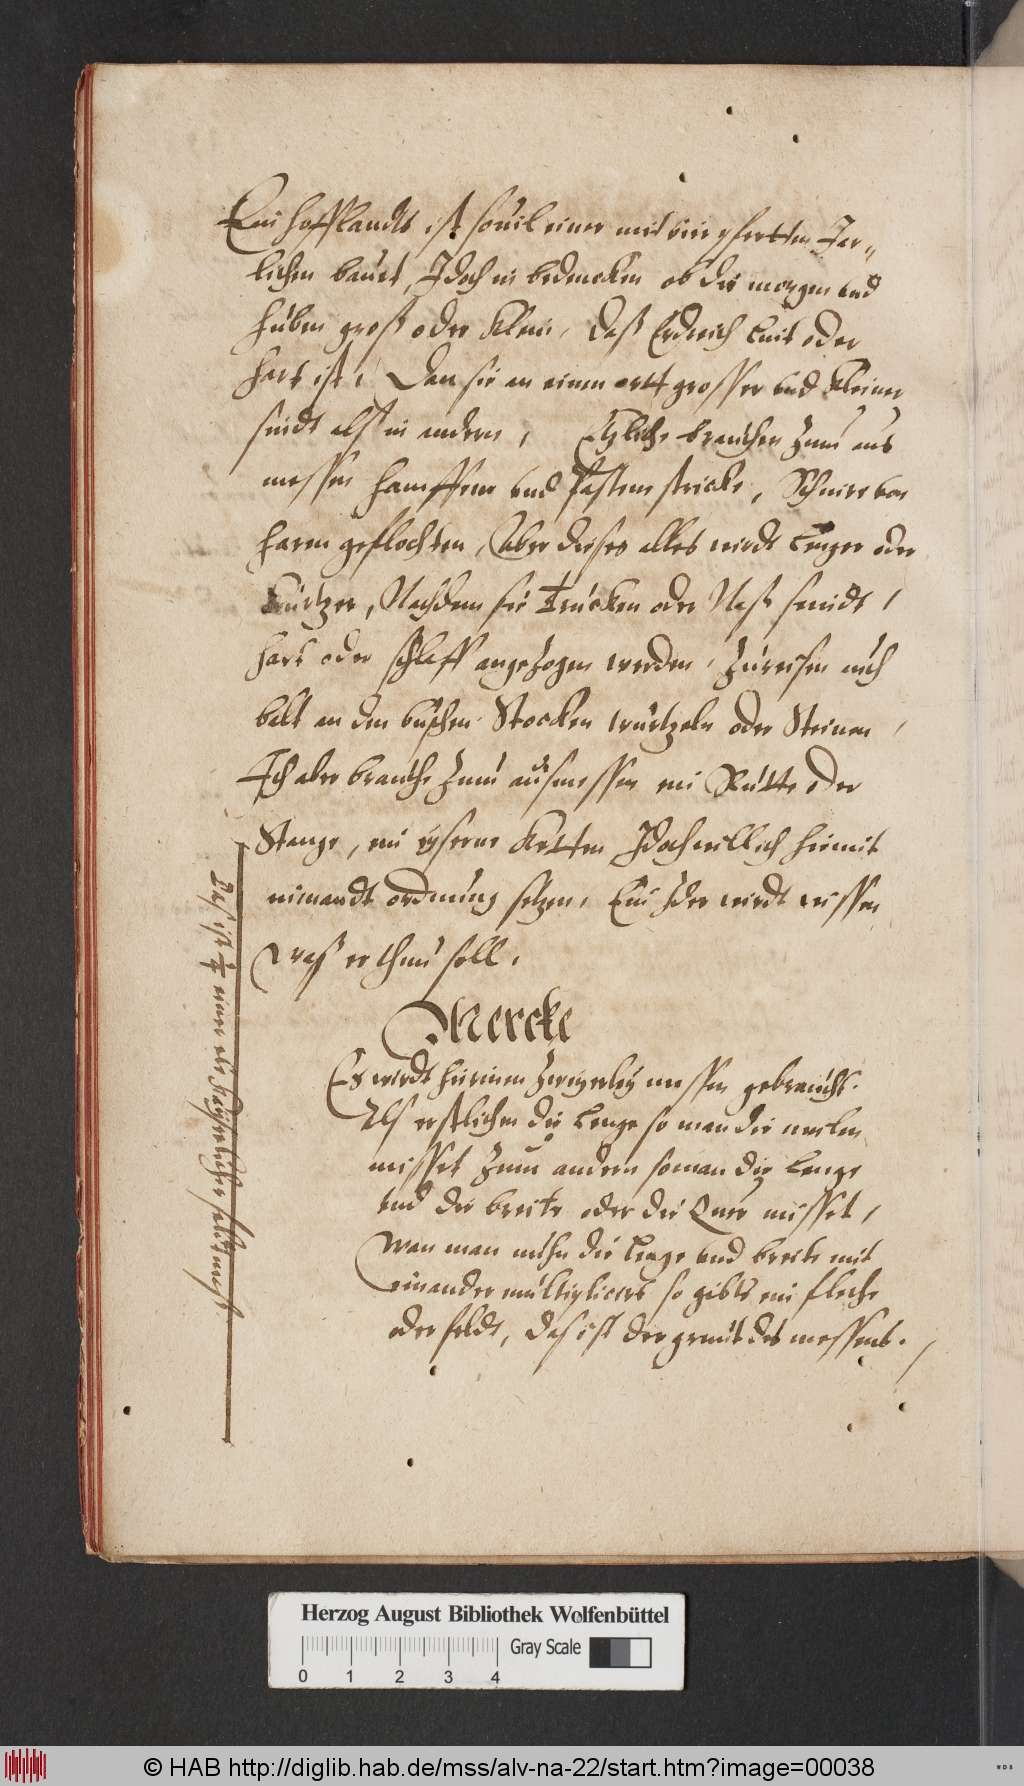 Ein hofflandts ist souil einer mit vier pfertten Jer„
lichen bauet, Idoch in bedencken ob die morgen vnd
huben groß oder klein, daß Erdreich Luit oder
hart ist, Dan sie an einem ortt grosser vnd kleiner
sindt alß in andern, Etzliche brauchen zum aus
messen hanffene vnd pasten stricke, Schnire von
haren geflochten, Aber dieses alles wirdt Lenger oder
kurtzer, Nachdem sie trucken oder Naß seindt,
hart oder schlaff angezogen werden, zureisen auch
balt an den buschen Stocken wurtzeln oder Steinen,
Ich aber brauche zum ausmessen ein Rutte oder
Stange, ein eyserne Ketten Idoch will ich hiemit
nimandt ordnung setzen, Ein Jder wirdt wissen
waß er thun soll,
Mercke
Es wirdt hirinnen zweyerley messen gebraucht.
Als erstlichen die Lenge so man die meilen
misset zum andern so man die Lenge
vnd die breite oder die Quer misset,
Wan man nuhn die Lenge vnd breite mit
einander multiplicert so gibts ein fleche
oder feldt, das ist der grunt des messens.
Das ist 1/4 einer
Herzog August Bibliothek Wolfenbüttel
Gray Scale
0 1 2 3 4
© HAB http://diglib.hab.de/mss/alv-na-22/start.htm?image=00038